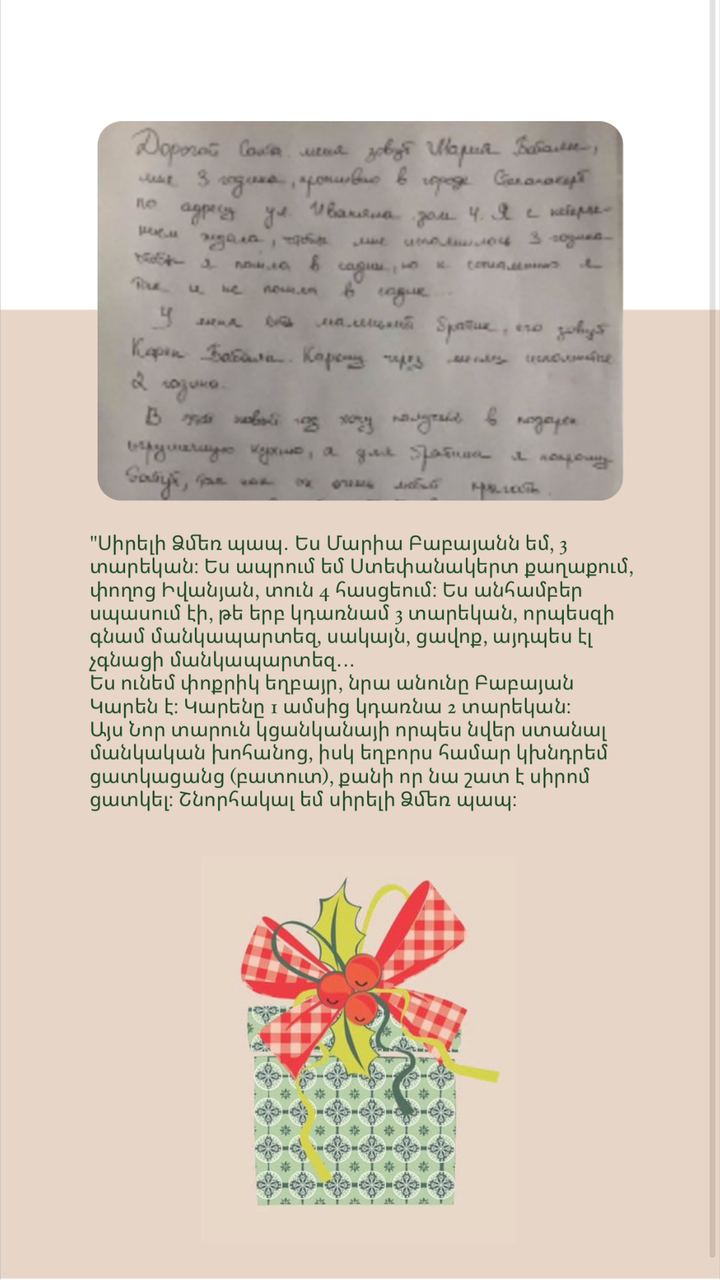 Дорогой Санта меня зовут Мария Бабаян,
мне 3 годика, проживаю в городе Степанакерт
по адресу ул. Иваняна дом 4. Я с нетерпе-
нием ждала, чтобы мне исполнилось 3 годика
чтобы я пошла в садик, но к сожалению я
так и не пошла в садик...
У меня есть маленький братик, его зовут
Карен Бабаян. Карену через месяц исполнится
2 годика.
В этот новый год хочу получить в подарок
игрушечную кухню, а для братика я попрошу
батут, так как он очень любит прыгать.
"Սիրելի Ձմեռ պապ. Ես Մարիա Բաբայանն եմ, 3
տարեկան: Ես ապրում եմ Ստեփանակերտ քաղաքում,
փողոց Իվանյան, տուն 4 հասցեում: Ես անհամբեր
սպասում էի, թե երբ կդառնամ 3 տարեկան, որպեսզի
գնամ մանկապարտեզ, սակայն, ցավոք, այդպես էլ
չգնացի մանկապարտեզ...
Ես ունեմ փոքրիկ եղբայր, նրա անունը Բաբայան
Կարեն է: Կարենը 1 ամսից կդառնա 2 տարեկան:
Այս Նոր տարուն կցանկանայի որպես նվեր ստանալ
մանկական խոհանոց, իսկ եղբորս համար կխնդրեմ
ցատկացանց (բատուտ), քանի որ նա շատ է սիրոմ
ցատկել: Շնորհակալ եմ սիրելի Ձմեռ պապ: